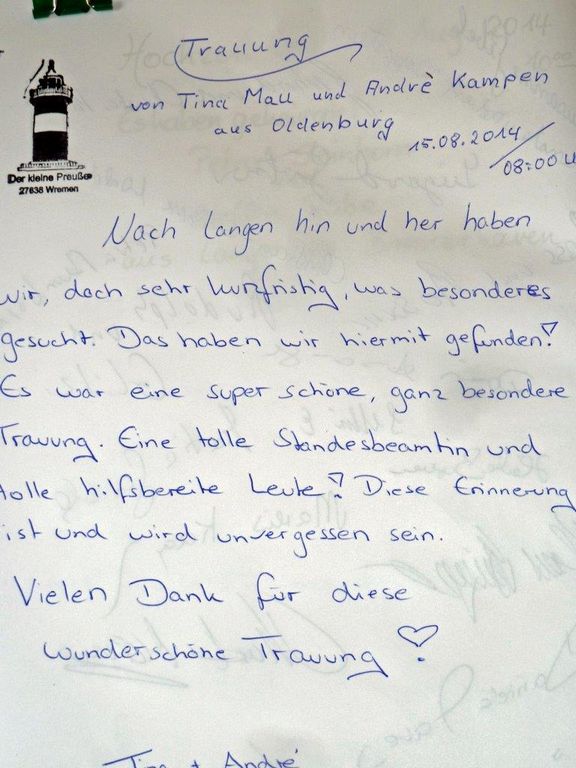 Trauung
von Tina Mau und Andrè Kampen
aus Oldenburg
15.08.2014
08:00 U
Der kleine Preuße
27638 Wremen
Nach langen hin und her haben
wir, doch sehr kurzfristig, was besonderes
gesucht. Das haben wir hiermit gefunden!
Es war eine super schöne, ganz besondere
Trauung. Eine tolle Standesbeamtin und
tolle hilfsbereite Leute! Diese Erinnerung
ist und wird unvergessen sein.
Vielen Dank für diese
wunderschöne Trauung!
Tina + André